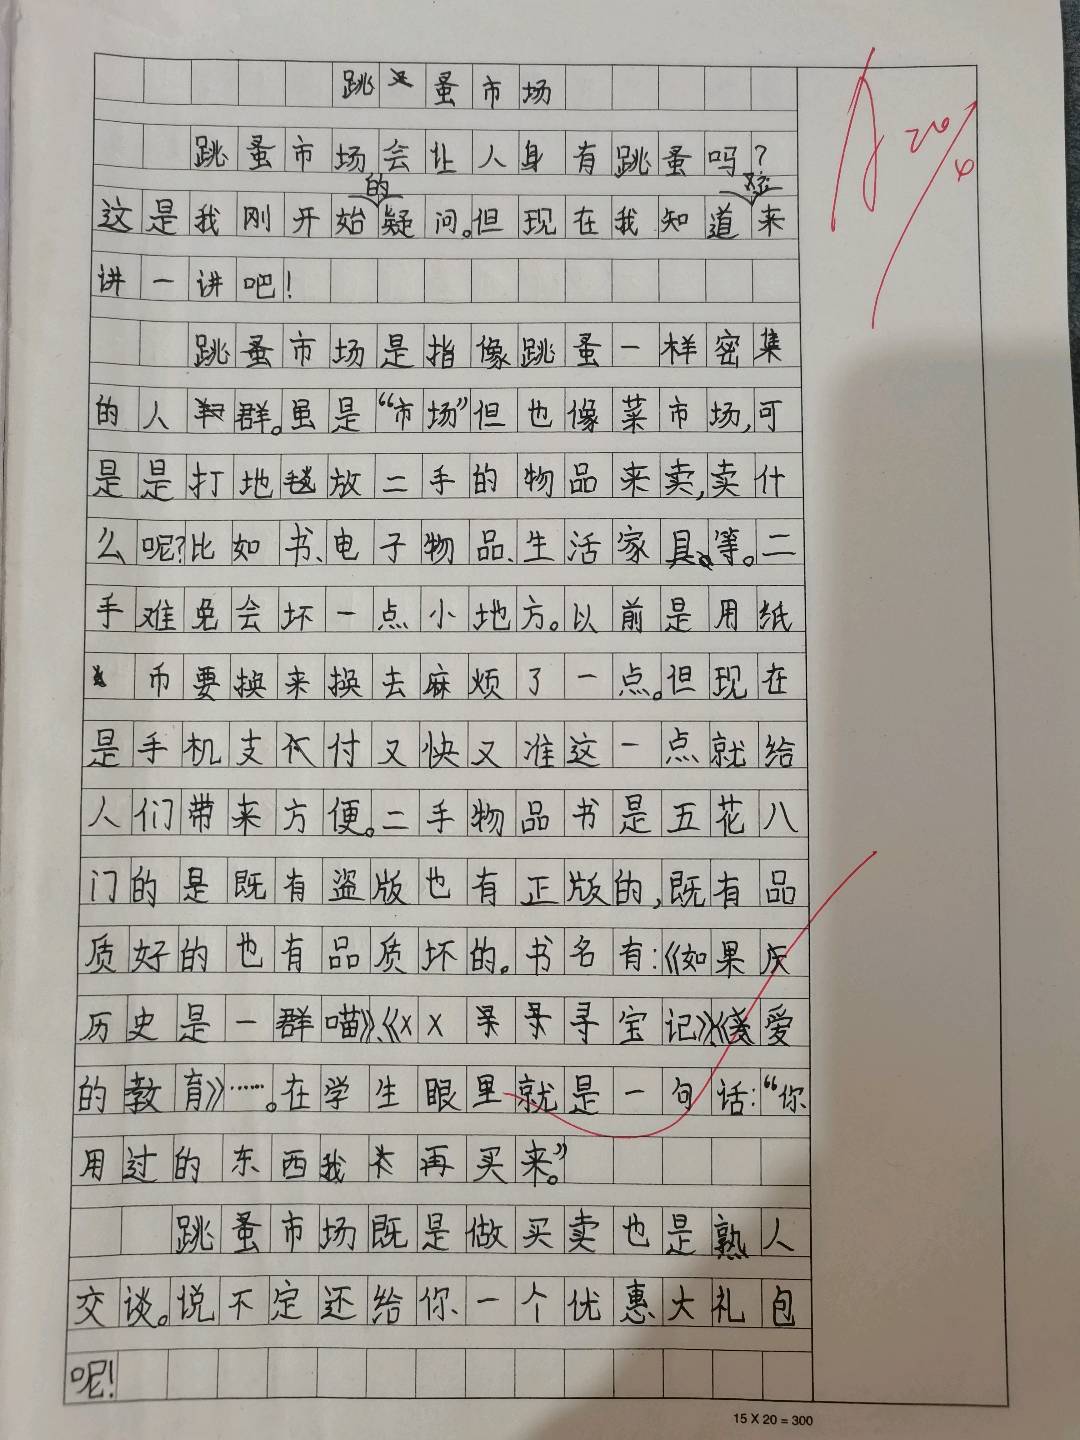 跳蚤市场
跳蚤市场会让人身有跳蚤吗?
这是我刚开始的疑问。但现在我知道来
讲一讲吧!
跳蚤市场是指像跳蚤一样密集
的人群。虽是“市场”但也像菜市场,可
是是打地毯放二手的物品来卖,卖什
么呢?比如书、电子物品、生活家具等。二
手难免会坏一点小地方。以前是用纸
币要换来换去麻烦了一点。但现在
是手机支付又快又准这一点就给
人们带来方便。二手物品书是五花八
门的是既有盗版也有正版的,既有品
质好的也有品质坏的。书名有:《如果
历史是一群喵》、《XX寻宝记》《爱
的教育》……。在学生眼里就是一句话:“你
用过的东西我再买来。”
跳蚤市场既是做买卖也是熟人
交谈。说不定还给你一个优惠大礼包
呢!
15 X 20 = 300